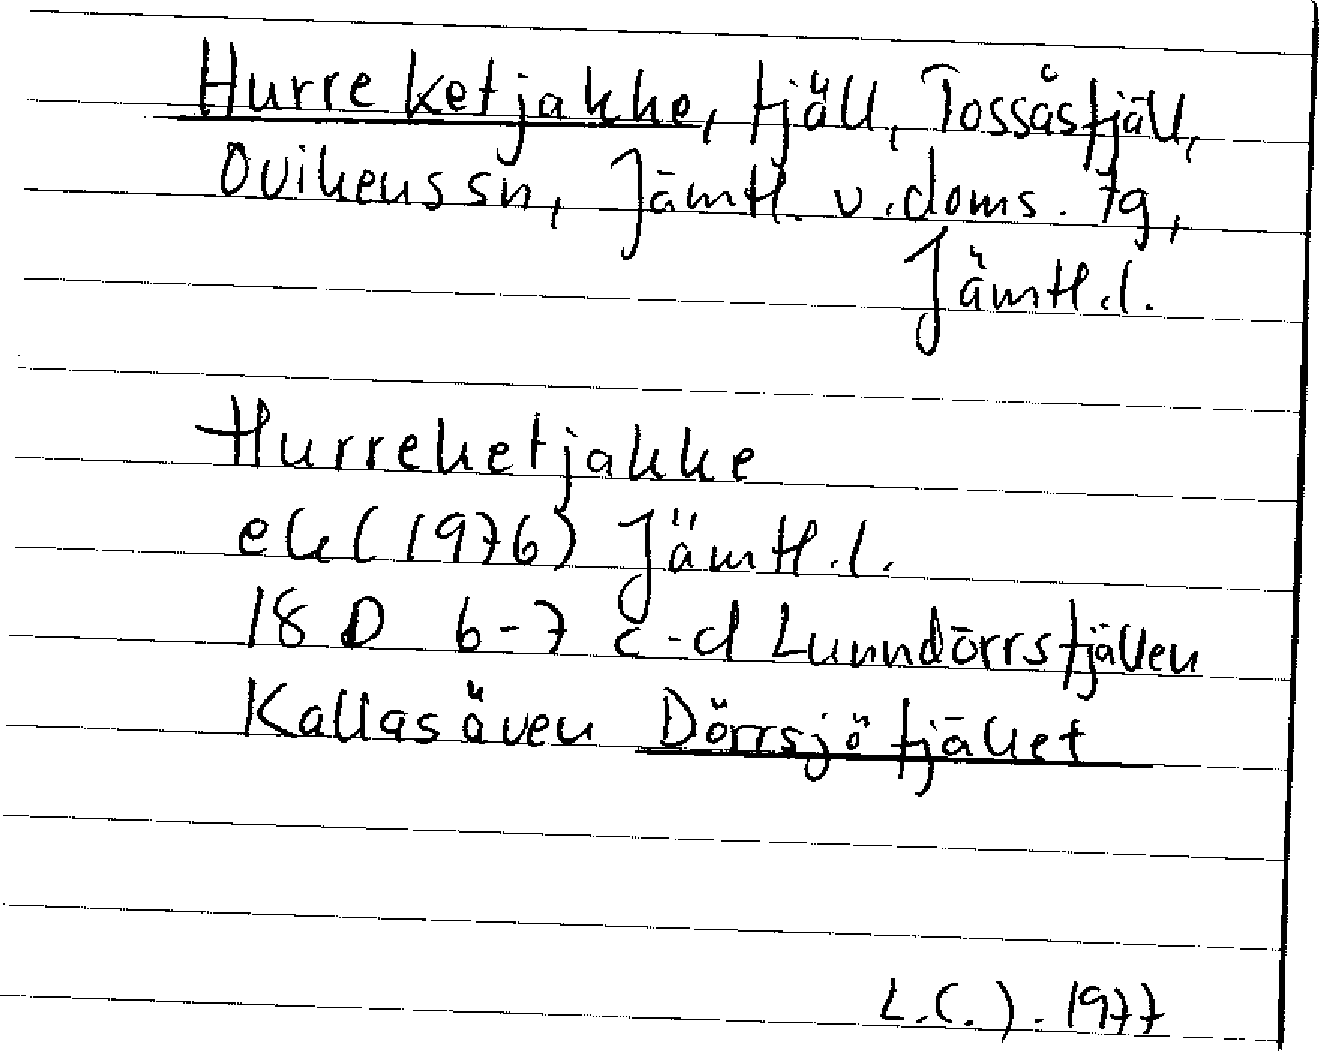 Hurreketjakke, fjäll, Tossåsfjäll,
Ovikens sn, Jämtl. v. doms. 7g,
Jämtl. l.
Hurreketjakke
ek (1976) Jämtl. l.
18 D 6-7 c-d Lunndörrsfjällen
Kallas även Dörrsjöfjället
L.C.J. 1977